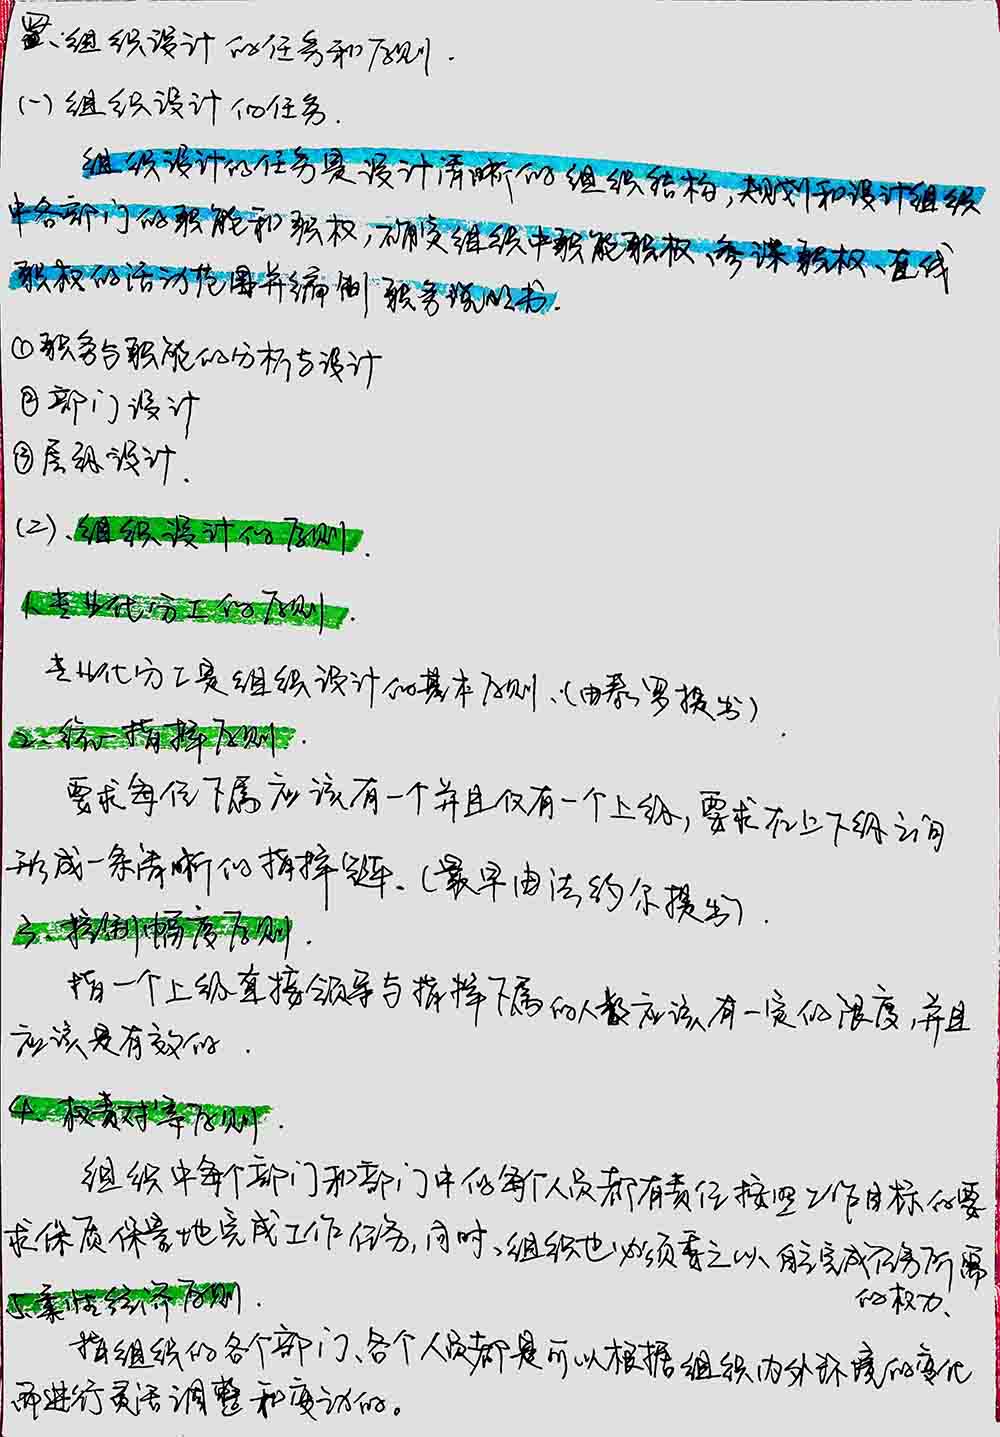 四、组织设计的任务和原则.
(一)组织设计的任务.
组织设计的任务是设计清晰的组织结构,规划和设计组织
中各部门的职能和职权,确定组织中职能职权、参谋职权、直线
职权的活动范围并编制职务说明书.
①职务与职能的分析与设计
②部门设计
③层级设计.
(2)、组织设计的原则.
1.专业化分工的原则.
专业化分工是组织设计的基本原则、(由泰罗提出)
2、统一指挥原则.
要求每位下属应该有一个并且仅有一个上级,要求在上下级之间
形成一条清晰的指挥链.(最早由法约尔提出).
3、控制幅度原则.
指一个上级直接领导与指挥下属的人数应该有一定的限度,并且
应该是有效的.
4、权责对等原则.
组织中每个部门和部门中的每个人员都有责任按照工作目标的要
求保质保量地完成工作任务,同时、组织也必须委之以完成任务所需
的权力、
5.柔性经济原则.
指组织的各个部门、各个人员都是可以根据组织内外环境的变化
而进行灵活调整和变动的。